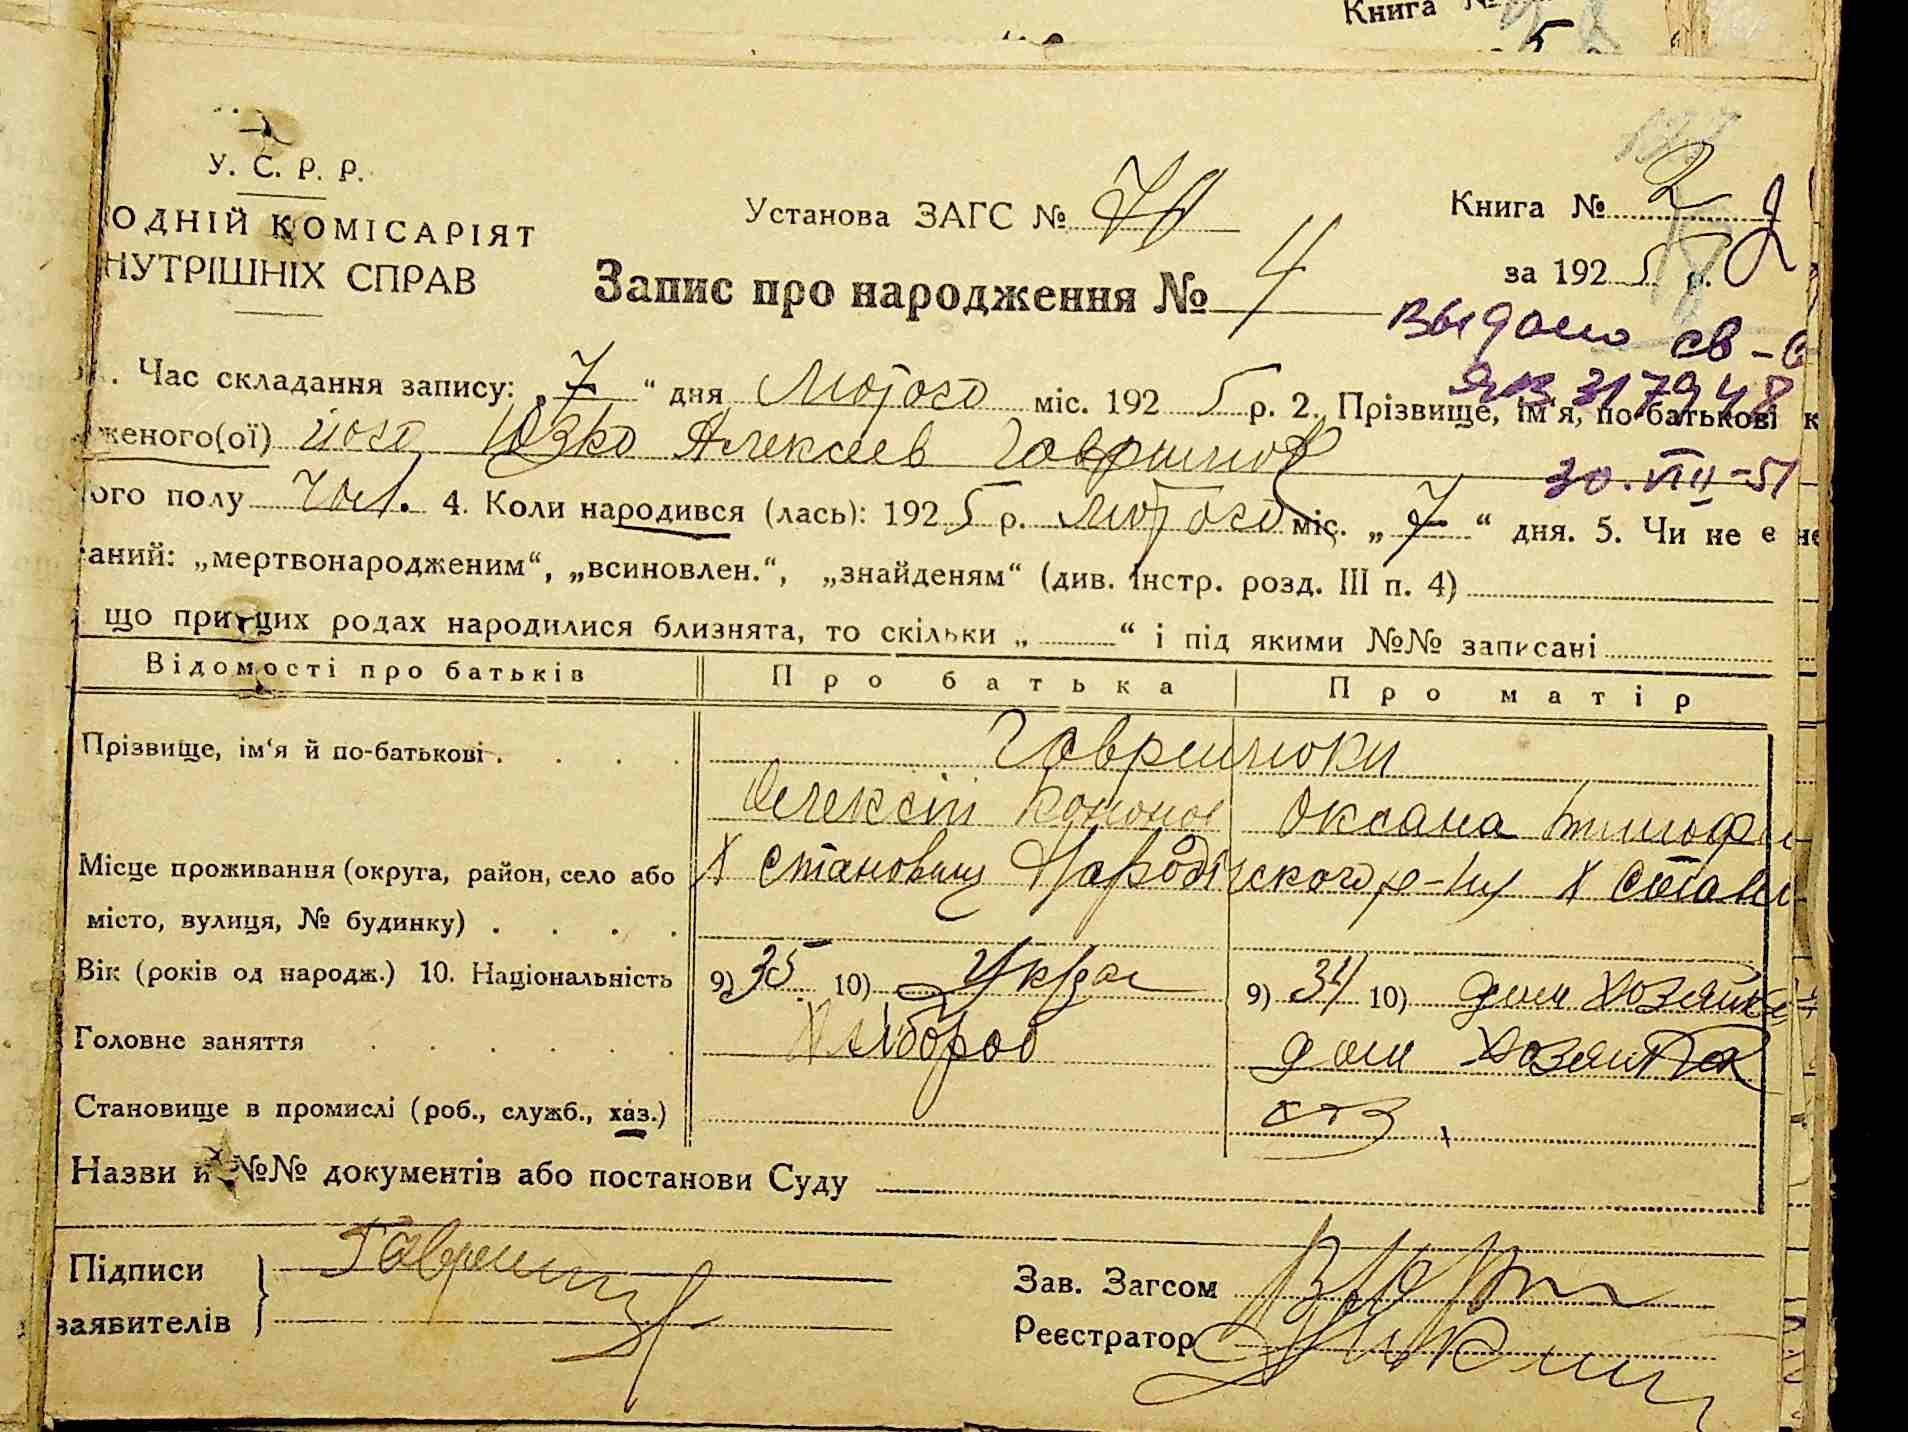 Книга №
5
У. С. Р. Р.
ОДНІЙ КОМІСАРІЯТ
НУТРІШНІХ СПРАВ
Установа ЗАГС №
Книга № 2
за 1925 р.
Запис про народження № 4
Выдано св-
ЯВ 317948
Час складання запису: „7“ дня Лютого міс. 1925 р. 2. Прізвище, ім'я, по-батькові
женого(ої) Юзко Алексеев Гаврилюк
30.VIII-51
ого полу чол. 4. Коли народився (лась): 1925 р. Лютого міс. „7“ дня. 5. Чи не є не
аний: „мертвонародженим“, „всиновлен.“, „знайденям“ (див. Інстр. розд. III п. 4)
що при цих родах народилися близнята, то скільки „ “ і під якими №№ записані
Відомості про батьків Про батька Про матір
Прізвище, ім'я й по-батькові Гаврилюки
Олексій Кононов Оксана Тимоф
Місце проживання (округа, район, село або Х Становищ Народіцского р-ну Х Стано
місто, вулиця, № будинку)
Вік (років од народж.) 10. Національність 9) 35 10) Укра 9) 34 10) дом хозяйка
Головне заняття Хлібороб дом хозяйка
Становище в промислі (роб., служб., хаз.) хаз
Назви й №№ документів або постанови Суду
Підписи
заявителів
Зав. Загсом
Реєстратор